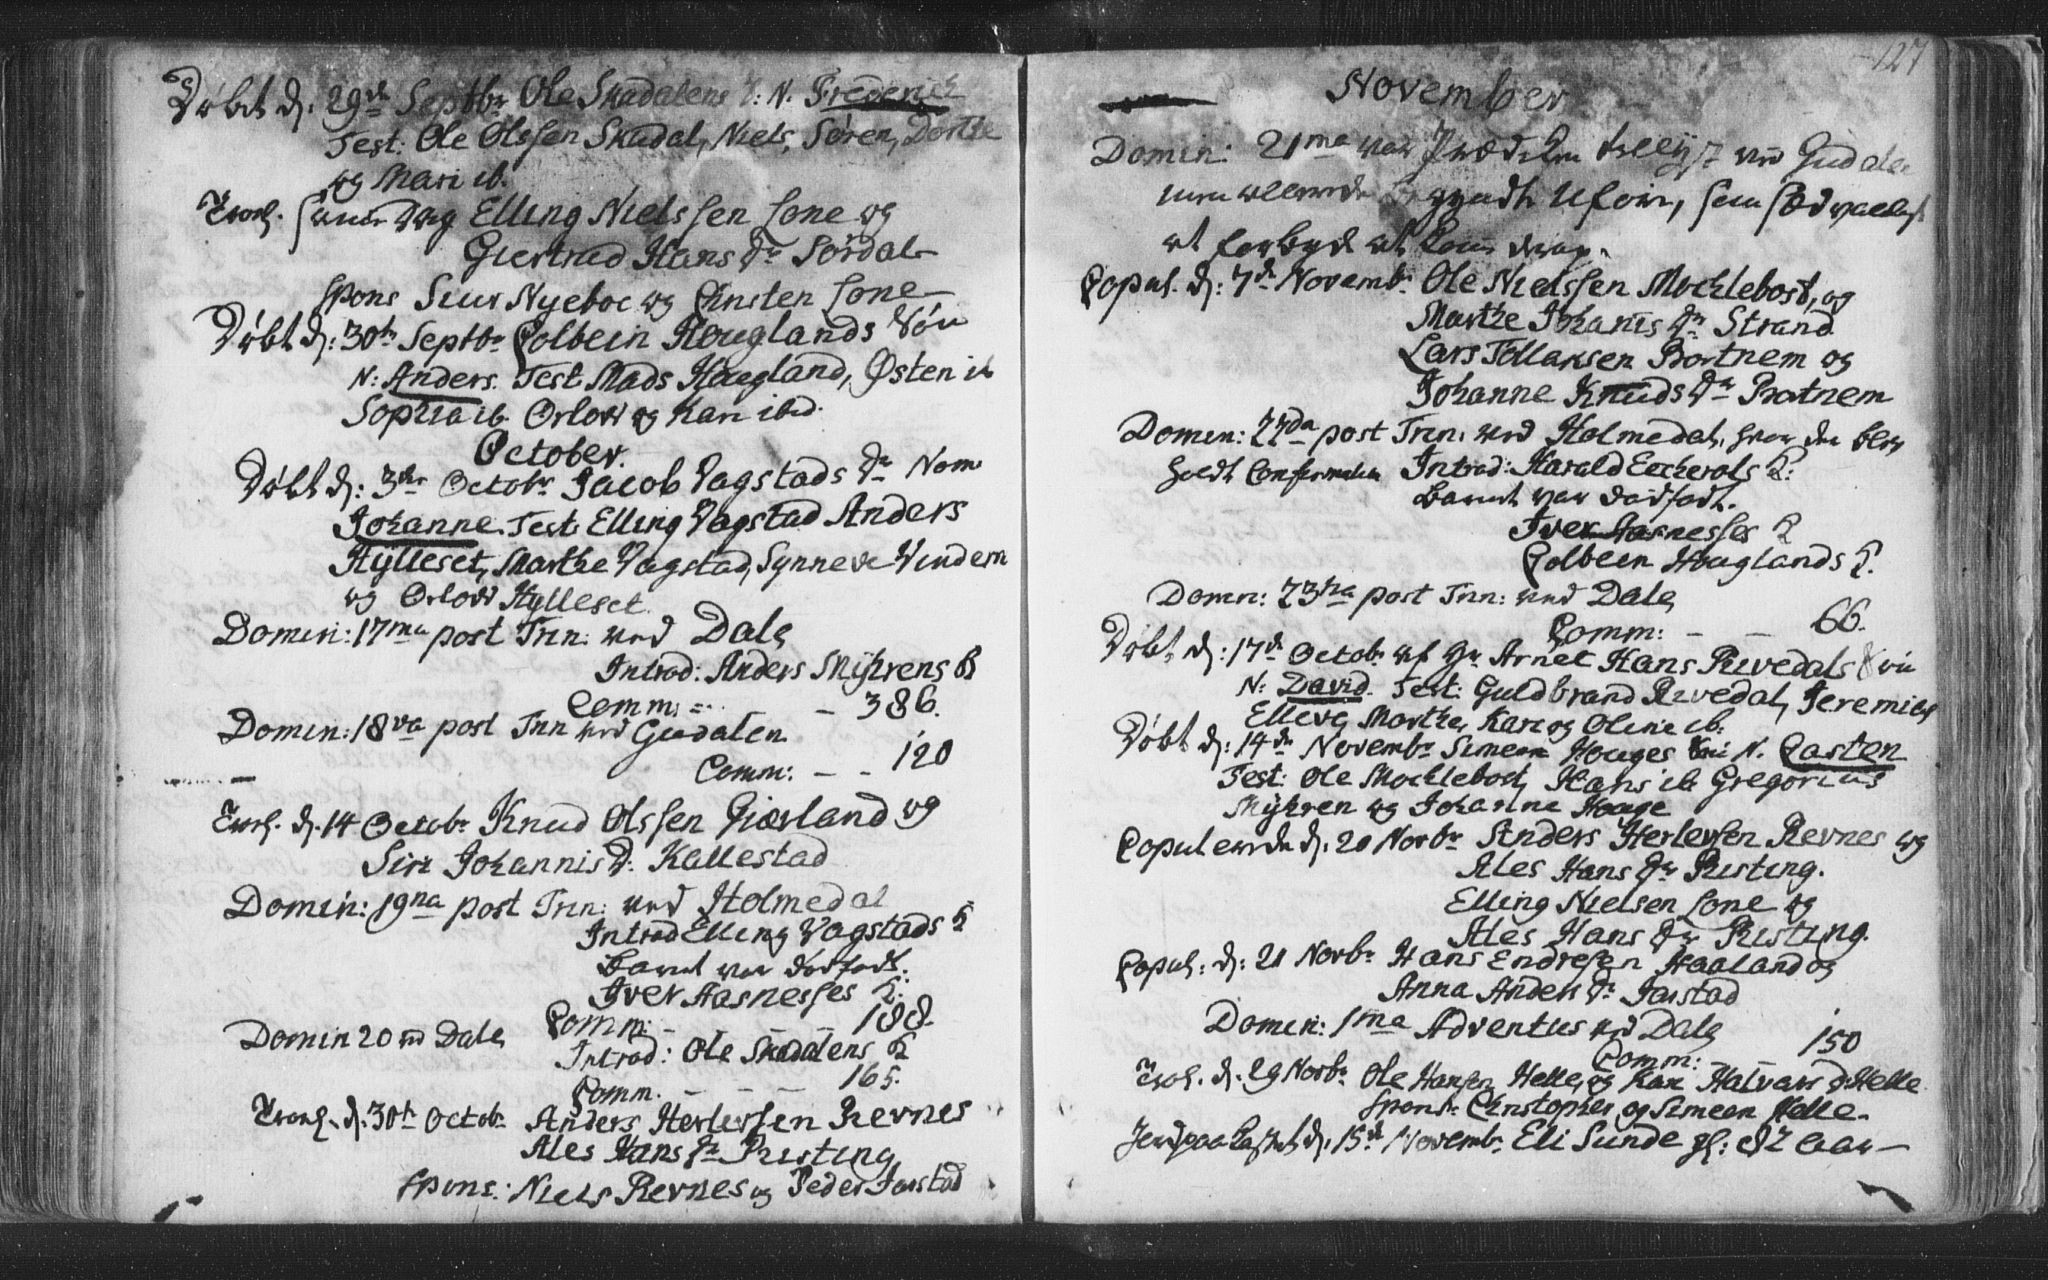 Døbt d: 29de Septbr Ole Skadalens S: N. Frederich
Test: Ole Olssen Skadal, Niels, Søren, Dorthe
og Mari ib.
Trol. samme Dag Elling Nielssen Lone og
Giertrud Hans Dr Sørdal
Spons Siur Nyeboe og Christen Lone
Døbt d: 30te Septbr Colbein Houglands Søn
N: Anders. Test Mads Hougland, Østen ib
Sophia ib. Orlow og Kari ibd.
October.
Døbt d: 3die Octobr Jacob Vagstads Dr Nom
Johanne. Test: Elling Vagstad Anders
Hylleset, Marthe Vagstad, Synneve Vindem
og Orlow Hylleset.
Domin: 17ma post Trin: ved Dale
Introd: Anders Myhrens K
Comm: - - 386.
Domin: 18va post Trin ved Gudalen
Comm: - - 120
Trol. d. 14 Octobr Knud Olssen Giærland og
Siri Johannis D. Kallestad
Domin: 19na post Trin: ved Holmedal
Introd Elling Vagstads K
Barnet var dødfødt.
Iver Aasnesses K.
Comm: - - - 188.
Domin 20 ved Dale
Introd: Ole Skadalens K
Comm. - - - 165.
Trol. d: 30te Octobr Anders Herlefsen Revnes
Ales Hans Dr Risting
Spons: Niels Revnes og Peder Jarstad
127
November
Domin: 21ma var Prædiken ved Gudalen
men formedelst Ufør, som sædvanligst
at forbyde at
Copul. d: 7de Novembr Ole Nielssen Mochlebost, og
Marthe Johannis Dr Strand
Lars Tollaksen Bortnem og
Johanne Knuds Dr Botnem
Domin: 22da post Trin: ved Holmedal, hvor der blev
holdt Confirmation Introd: Harald Eccherols K:
Barnet var dødfødt.
Iver Aasnesses K
Colbein Hoaglands K.
Domin: 23tia post Trin: ved Dale
Comm: - - 66.
Døbt d: 17de Octobr af Hr Arnet Hans Rivedals Søn
N: David. Test: Guldbrand Rivedal, Jeremias
Elleve, Marthe, Kari og Oline ib.
Døbt d: 14de Novembr Simeon Houges Søn N. Carsten
Test: Ole Mochlebost, Hans ib Gregorius
Myhren og Johanne Houge
Copulerede d: 20 Novbr Anders Herlefsen Revnes og
Ales Hans Dr Risting.
Elling Nielsen Lone og
Ales Hans Dr Risting.
Copul: d: 21 Novbr Hans Endresen Haaland og
Anna Anders Dr Jarstad
Domin: 1ma Adventus ved Dale
Comm: - - 150
Trol. d. 29 Novbr Ole Hansen Helle og Kari Halvars D: Helle
Spons: Christopher og Simeon Helle.
Jordpaakastet d: 15de Novembr Eli Sunde gl: 82 aar -